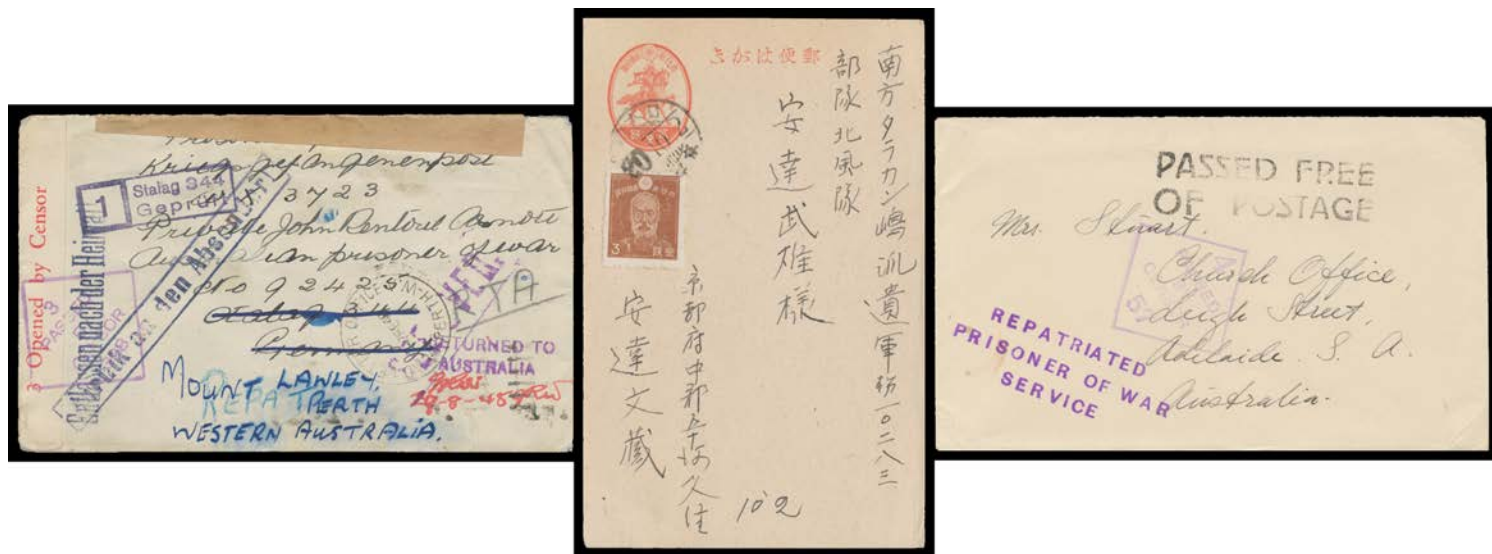 3 Opened by Censor
Kriegsgefangenenpost
3723
1
Stalag 344
Geprüft
Private John Rentoul Arnott
Australian prisoner of war
No 92425
Stalag 344
Germany
RETURNED TO
AUSTRALIA
29-8-45
TA
MOUNT LAWLEY.
REPAT PERTH
WESTERN AUSTRALIA.
郵便はがき
南方タラカン嶋派遣軍務一〇二八三
部隊北風隊
安達武雄様
京都府中郡五十河久住
安達文蔵
10 2
3
PASSED FREE
OF POSTAGE
Mrs. Stuart.
Church Office,
Leigh Street,
Adelaide. S. A.
Australia.
REPATRIATED
PRISONER OF WAR
SERVICE